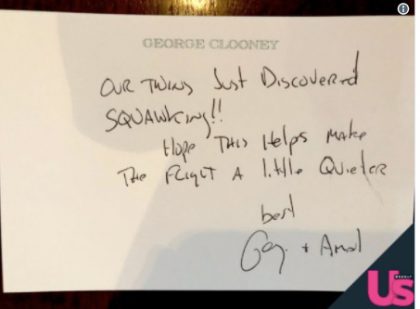 GEORGE CLOONEY
OUR TWINS JUST DISCOVERED
SQUAWKING!!
HOPE THIS HELPS MAKE
THE FLIGHT A LITTLE QUIETER
best
+ Amal
Us
WEEKLY